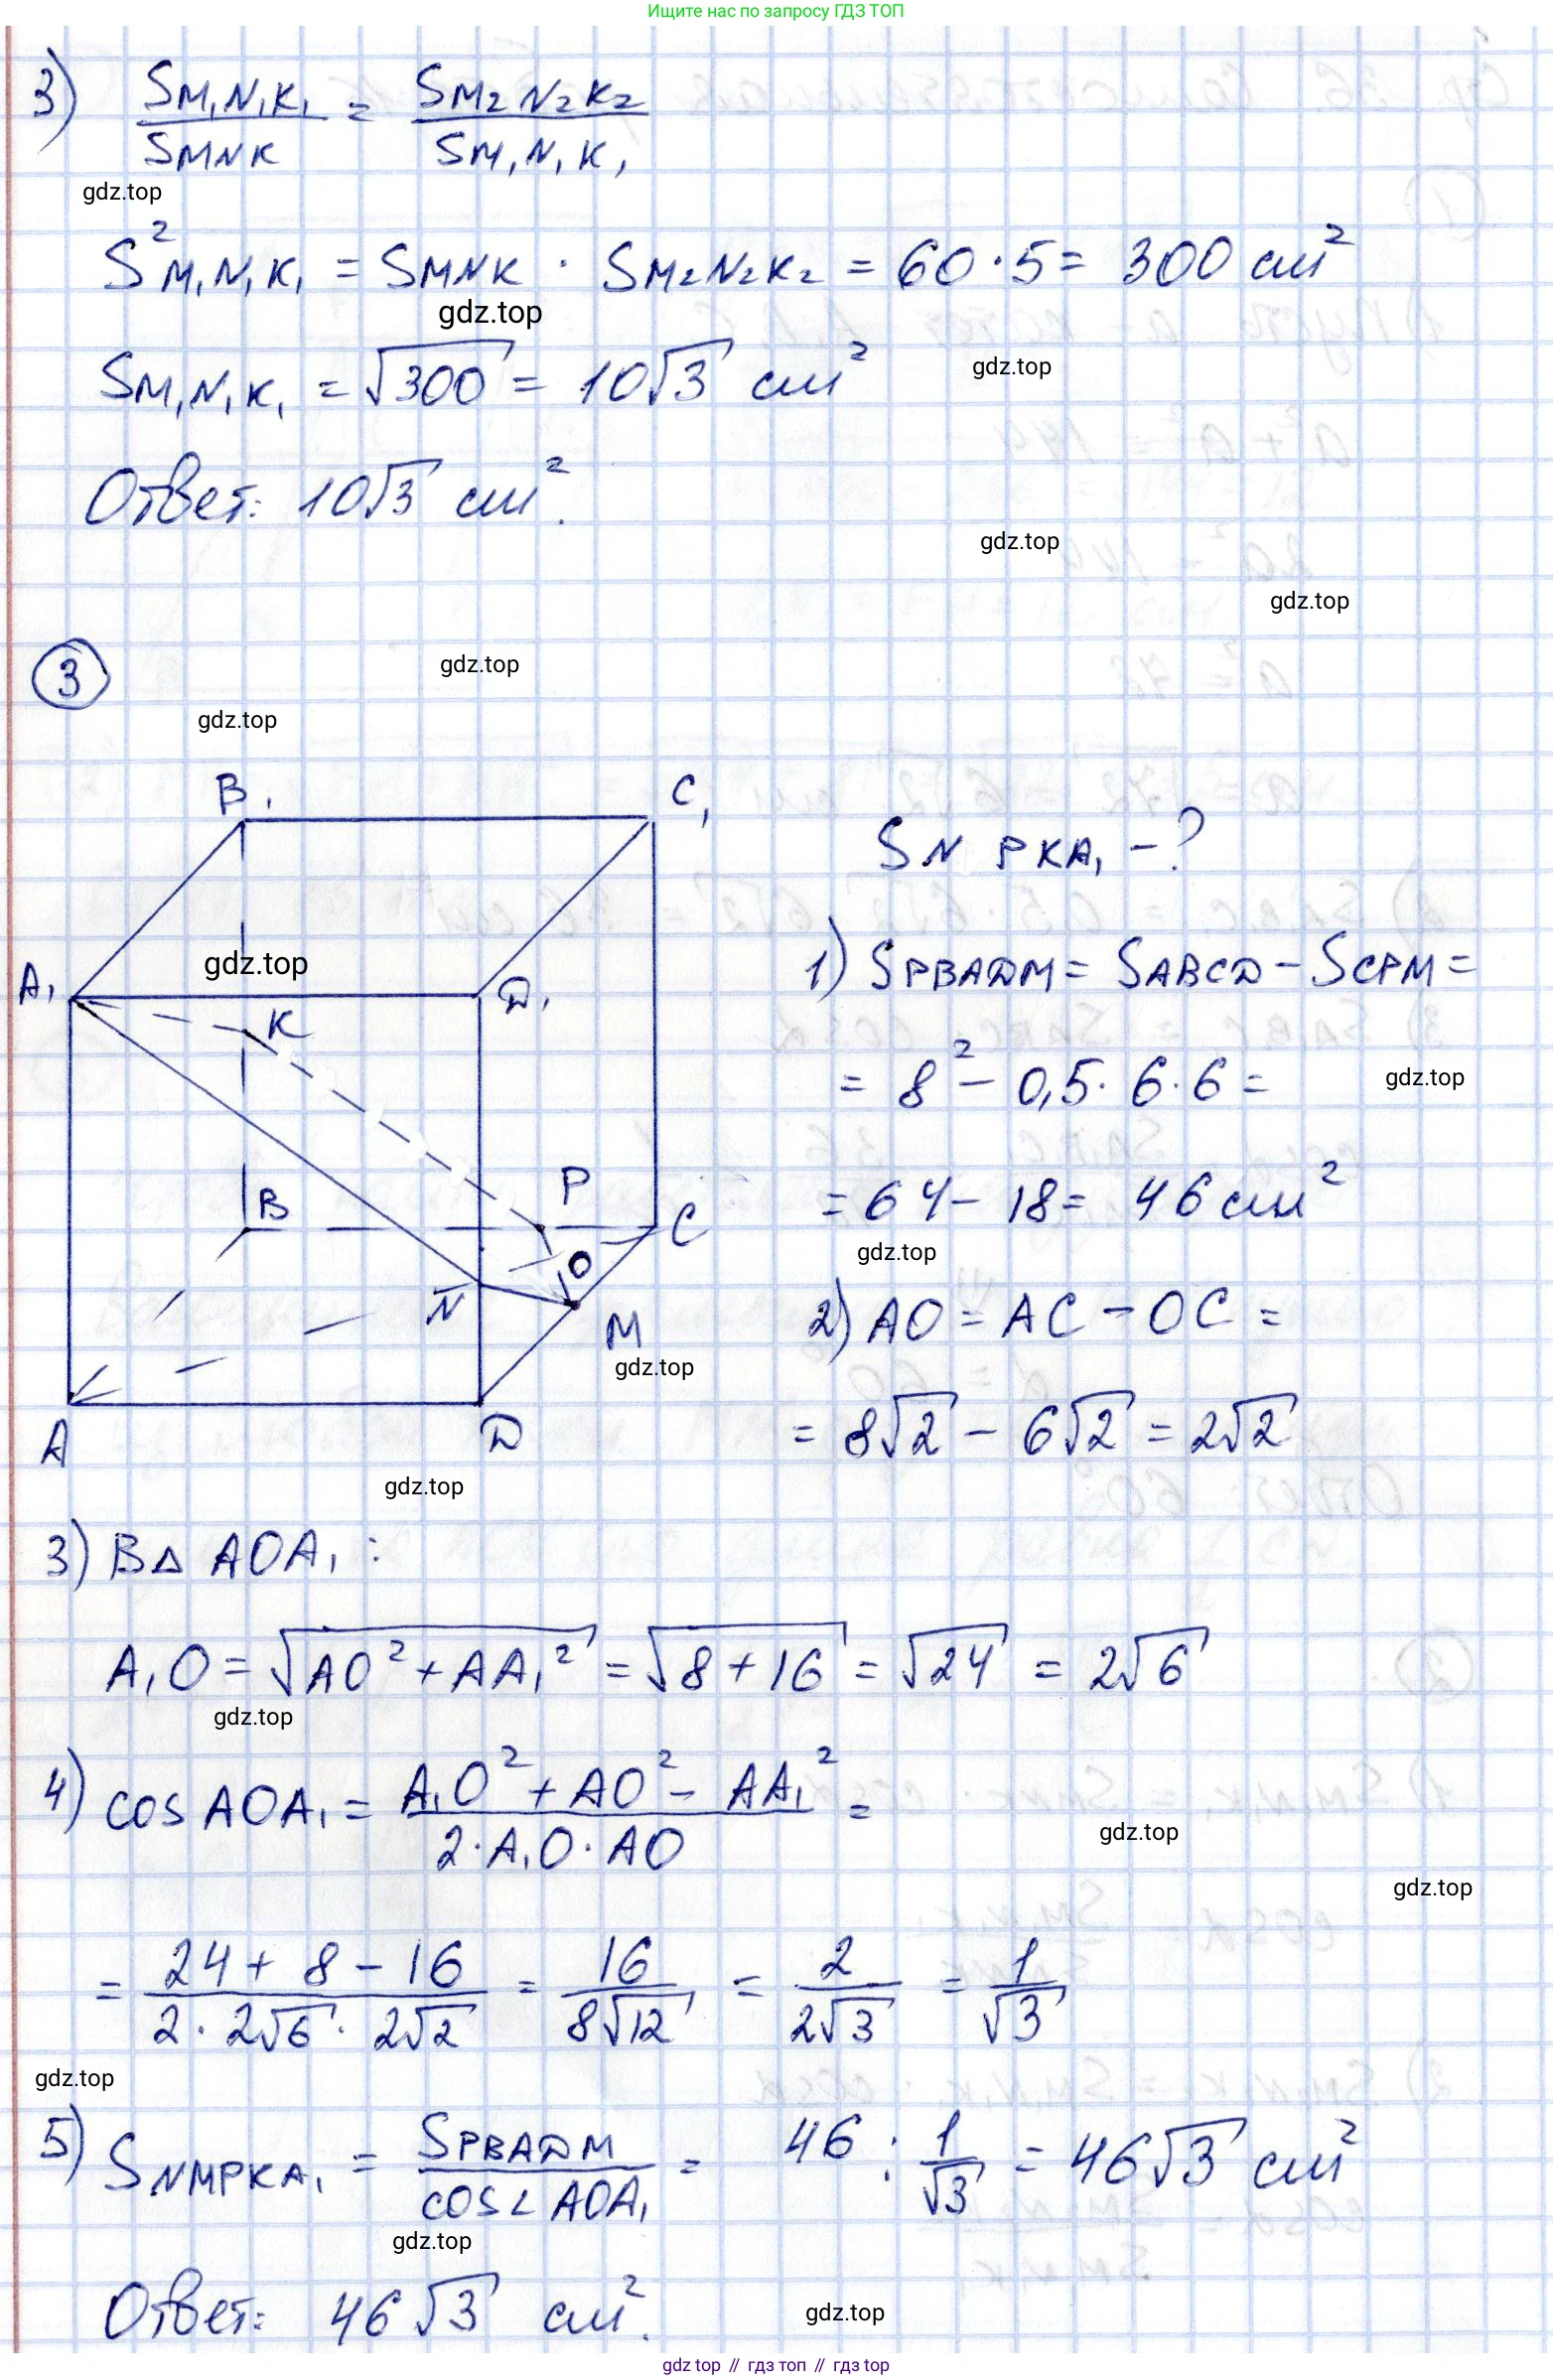 Ищите нас по запросу ГДЗ ТОП
3) S M₁N₁K₁ / S MNK = S M₂N₂K₂ / S M₁N₁K₁
gdz.top
S² M₁N₁K₁ = S MNK · S M₂N₂K₂ = 60·5 = 300 см²
gdz.top
S M₁N₁K₁ = √300 = 10√3 см²
gdz.top
Ответ: 10√3 см².
gdz.top
gdz.top
3
gdz.top
gdz.top
B₁ C₁
S N PKA₁ - ?
A₁ gdz.top D₁
K
1) S PBADM = S ABCD - S CPM =
= 8² - 0,5·6·6 =
gdz.top
B P C
= 64 - 18 = 46 см²
gdz.top
O
N M
2) AO = AC - OC =
gdz.top
A D
= 8√2 - 6√2 = 2√2
gdz.top
3) В△ AOA₁:
A₁O = √AO² + AA₁² = √8 + 16 = √24 = 2√6
gdz.top
4) cos AOA₁ = A₁O² + AO² - AA₁² / 2·A₁O·AO =
gdz.top
gdz.top
= 24 + 8 - 16 / 2·2√6·2√2 = 16 / 8√12 = 2 / 2√3 = 1 / √3
gdz.top
5) S NMPKA₁ = S PBADM / cos∠AOA₁ = 46 : 1 / √3 = 46√3 см²
gdz.top
Ответ: 46√3 см².
gdz.top
gdz top // гдз топ // гдз top